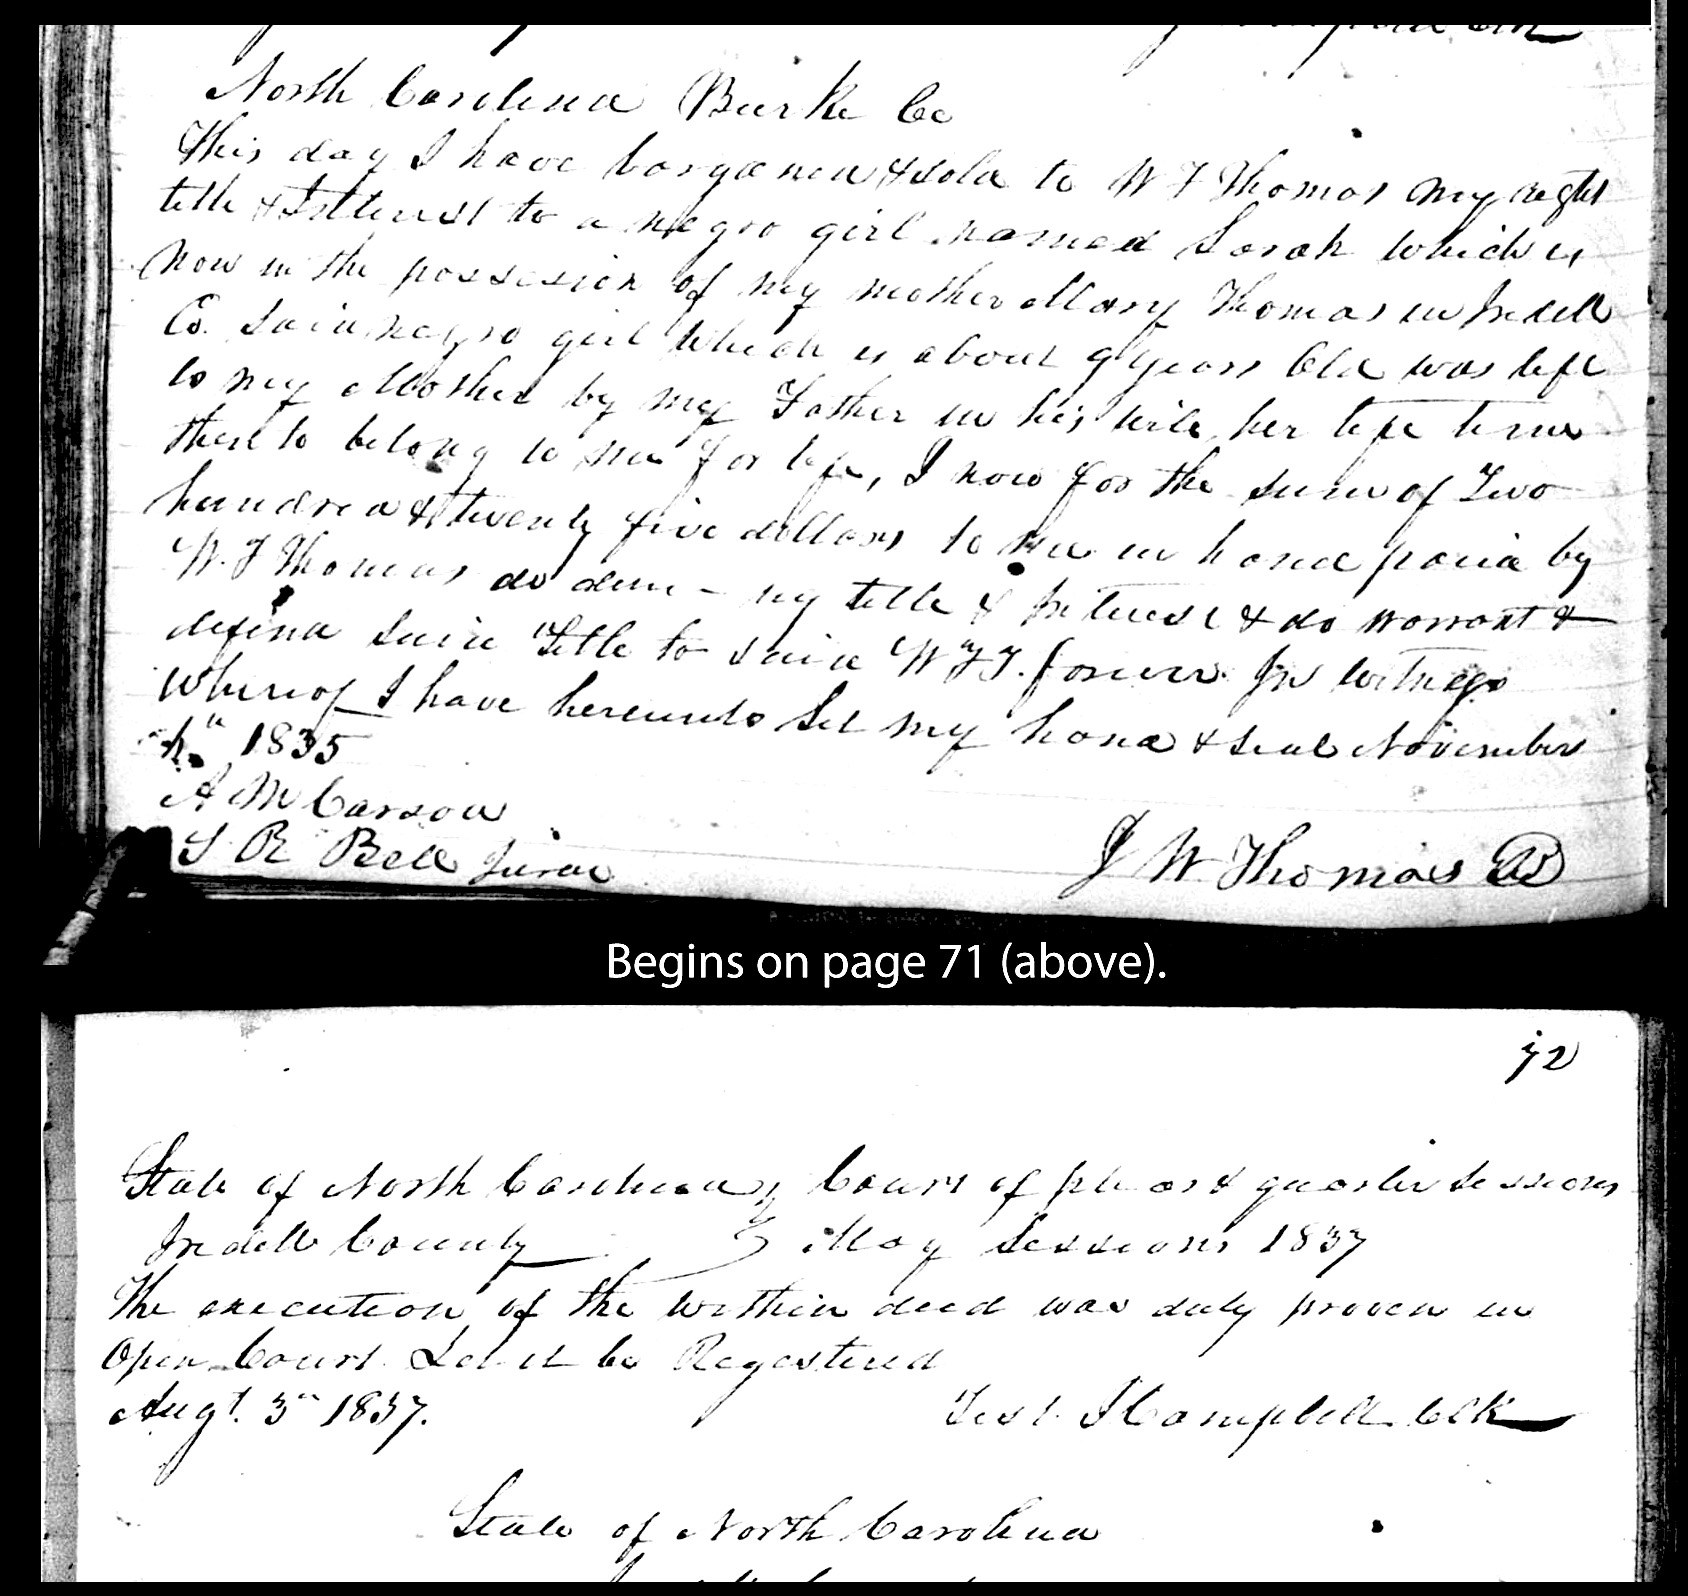 North Carolina Burke Co
This day I have bargained & sold to W F Thomas my right
title & Intterest to a negro girl named Sarah which is
now in the possesion of my mother Mary Thomas in Iredell
Co. Said negro girl which is about 9 years Old was left
to my Mother by my Father in his will her life time
then to belong to me for life, I now for the sum of Two
hundred & twenty five dollars to me in hand paid by
W. F Thomas do my title & Interest & do warrant &
defend said Title to said W F T. forever In witness
whereof I have hereunto Set my hand & Seal November
1835
A M Carson
S R Bell Jurat
J W Thomas
Begins on page 71 (above).
72
State of North Carolina Court of pleas & quarter Sessions
Iredell County May Sessions 1837
The execution of the within deed was duly proven in
Open Court Let it be Registered
Augt. 3rd 1837.
Test. J Campbell Clk
State of North Carolina